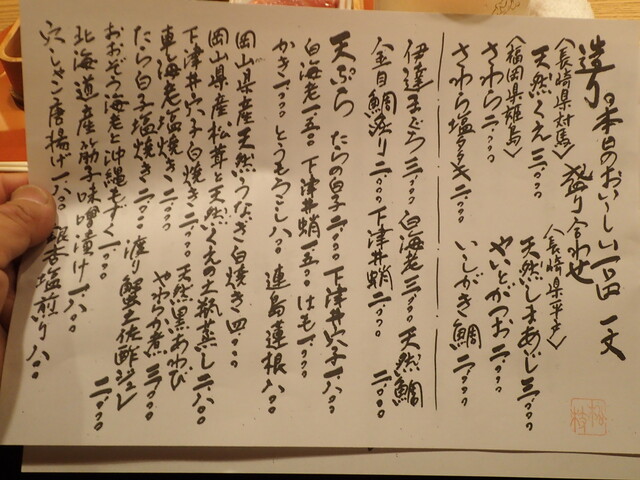 造り 本日のおいしい一品 一丈
盛り合わせ
〈長崎県対馬〉
天然くえ 三、〇〇〇
〈長崎県平戸〉
天然しまあじ 三、〇〇〇
〈福岡県姫島〉
さわら 二、〇〇〇
やいとがつお 二、〇〇〇
さわら塩たたき 二、〇〇〇
いしがき鯛 二、〇〇〇
伊達まぐろ 三、〇〇〇 白海老 三、〇〇〇 天然鯛 二、〇〇〇
金目鯛造り 二、〇〇〇 下津井蛸 二、〇〇〇
天ぷら たらの白子 二、〇〇〇 下津井穴子 一、八〇〇
白海老 一、五〇〇 下津井蛸 一、五〇〇 はも 一、〇〇〇
かき 一、〇〇〇 とうもろこし 八〇〇 連島蓮根 八〇〇
岡山県産天然うなぎ白焼き 四、〇〇〇
岡山県産松茸と天然くえの土瓶蒸し 二、八〇〇
下津井穴子白焼き 二、〇〇〇 天然黒あわびやわらか煮 三、〇〇〇
車海老塩焼き 二、〇〇〇
たら白子塩焼き 二、〇〇〇 渡り蟹土佐酢ジュレ 二、〇〇〇
おおぞう海老と沖縄もずく 一、〇〇〇
北海道産筋子味噌漬け 一、八〇〇
穴しゃこ唐揚げ 一、八〇〇 銀杏塩煎り 八〇〇